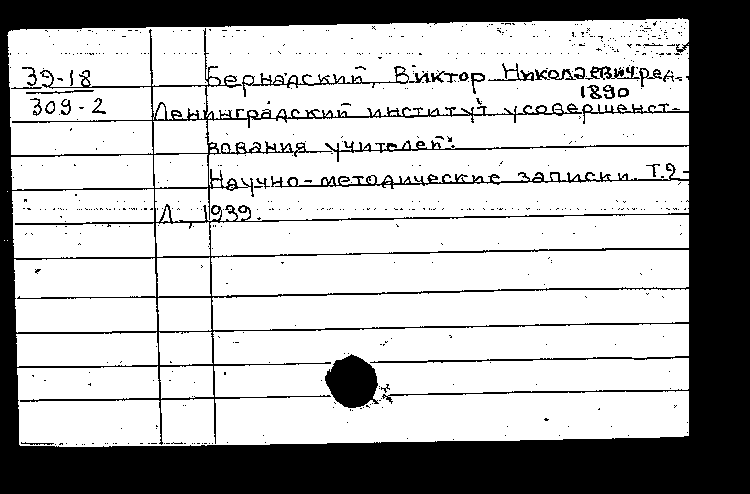 39-18
309-2
Бернадский, Виктор Николаевич, ред.
1890
Ленинградский институт усовершенст-
вования учителей:
Научно-методические записки. Т.2,-
Л., 1939.